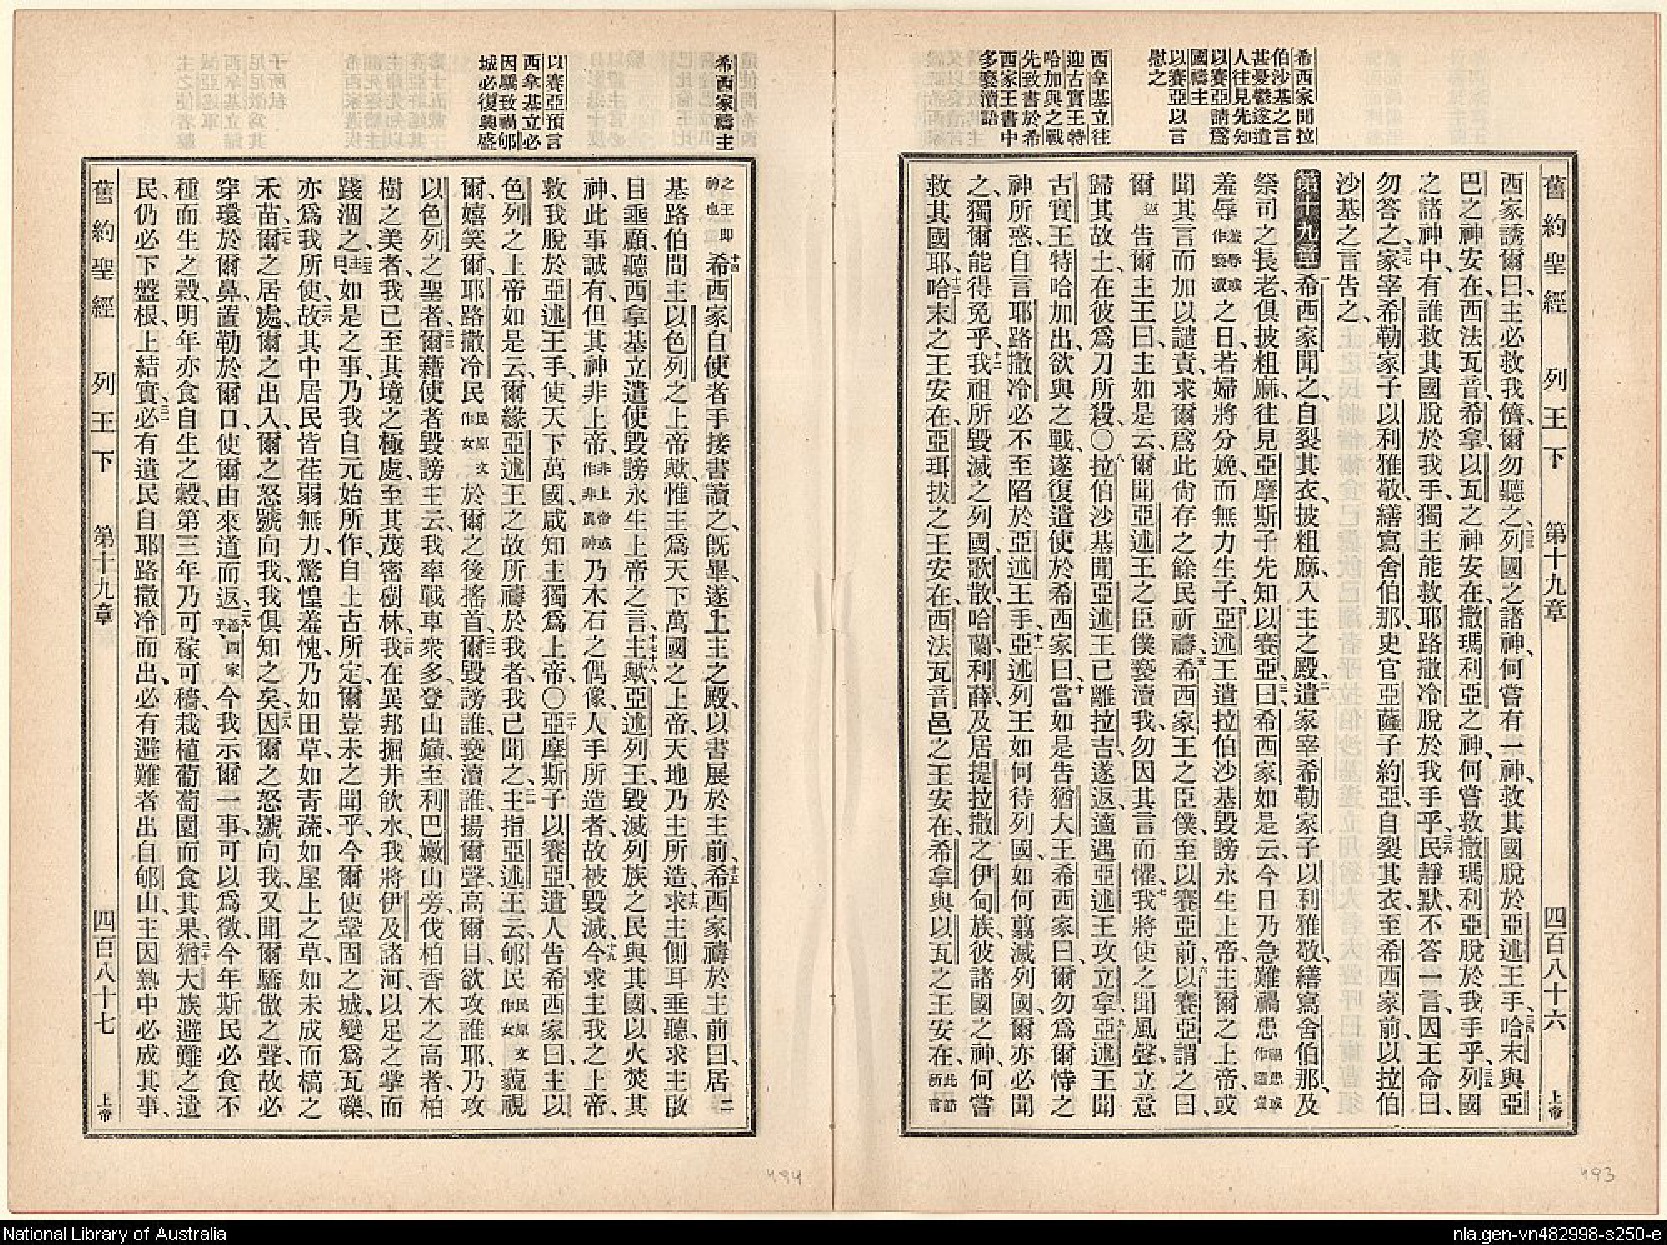 舊約聖經 列王下 第十九章 四百八十六 上帝
希西家聞拉
伯沙基之言
甚憂鬱遂遣
人往見先知
以賽亞請爲
國禱主
以賽亞以言
慰之
西拿基立往
迎古實王特
哈加興之戰
先致書於希
西家王書中
多褻瀆語
西家誘爾曰主必救我儕爾勿聽之列國之諸神何嘗有一神救其國脫於亞述王手哈末與亞
巴之神安在西法瓦音希拿以瓦之神安在撒瑪利亞之神何嘗救撒瑪利亞脫於我手乎列國
之諸神中有誰救其國脫於我手獨主能救耶路撒冷脫於我手乎民靜默不答一言因王命曰
勿答之家宰希勒家子以利雅敬繕寫舍伯那史官亞薩子約亞自裂其衣至希西家前以拉伯
沙基之言告之
第十九章 希西家聞之自裂其衣披粗麻入主之殿遣家宰希勒家子以利雅敬繕寫舍伯那及
祭司之長老俱披粗麻往見亞摩斯子先知以賽亞曰希西家如是云今日乃急難禍患
羞辱之日若婦將分娩而無力生子亞述王遣拉伯沙基毀謗永生上帝主爾之上帝或
聞其言而加以譴責求爾爲此尙存之餘民祈禱希西家王之臣僕至以賽亞前以賽亞謂之曰
爾返告爾主王曰主如是云爾聞亞述王之臣僕褻瀆我勿因其言而懼我將使之聞風聲立意
歸其故土在彼爲刀所殺〇拉伯沙基聞亞述王已離拉吉遂返適遇亞述王攻立拿亞述王聞
古實王特哈加出欲與之戰遂復遣使於希西家曰當如是告猶大王希西家曰爾勿爲爾恃之
神所惑自言耶路撒冷必不至陷於亞述王手亞述列王如何待列國如何翦滅列國爾亦必聞
之獨爾能得免乎我祖所毀滅之列國歌散哈蘭利薛及居提拉撒之伊甸族彼諸國之神何嘗
救其國耶哈末之王安在亞珥拔之王安在西法瓦音邑之王安在希拿與以瓦之王安在此節所言
希西家禱主
以賽亞預言
西拿基立必
因驕致禍郇
城必復興盛
之王卽神也 希西家自使者手接書讀之旣畢遂上主之殿以書展於主前希西家禱於主前曰居二
基路伯間主以色列之上帝歟惟主爲天下萬國之上帝天地乃主所造求主側耳垂聽求主啟
目垂顧聽西拿基立遣使毀謗永生上帝之言主歟亞述列王毀滅列族之民與其國以火焚其
神此事誠有但其神非上帝非上帝或作非眞神乃木石之偶像人手所造者故被毀滅今求主我之上帝
救我脫於亞述王手使天下萬國咸知主獨爲上帝〇亞摩斯子以賽亞遣人告希西家曰主以
色列之上帝如是云爾緣亞述王之故所禱於我者我已聞之主指亞述王云郇民民原文作女藐視
爾嬉笑爾耶路撒冷民民原文作女於爾之後搖首爾毀謗誰褻瀆誰揚爾聲高爾目欲攻誰耶乃攻
以色列之聖者爾藉使者毀謗主云我率戰車衆多登山巔至利巴嫩山旁伐柏香木之高者柏
樹之美者我已至其境之極處至其茂密樹林我在異邦掘井飲水我將伊及諸河以足之掌而
踐涸之主曰如是之事乃我自元始所作自上古所定爾豈未之聞乎今爾使鞏固之城變爲瓦礫
亦爲我所使故其中居民皆荏弱無力驚惶羞愧乃如田草如靑蔬如屋上之草如未成而槁之
禾苗爾之居處爾之出入爾之怒號向我我俱知之矣因爾之怒號向我又聞爾驕傲之聲故必
穿環於爾鼻置勒於爾口使爾由來道而返希西家乎今我示爾一事可以爲徵今年斯民必食不
種而生之穀明年亦食自生之穀第三年乃可稼可穡栽植葡萄園而食其果猶大族避難之遺
民仍必下盤根上結實必有遺民自耶路撒冷而出必有避難者出自郇山主因熱中必成其事
舊約聖經 列王下 第十九章 四百八十七 上帝
494
493
National Library of Australia
nla.gen-vn482998-s250-e